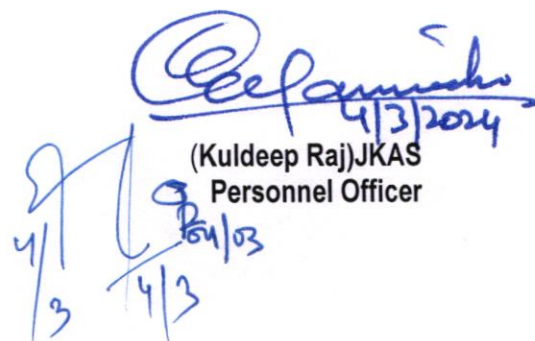 4/3/2024
(Kuldeep Raj)JKAS
Personnel Officer
04/03
4/3
4/3